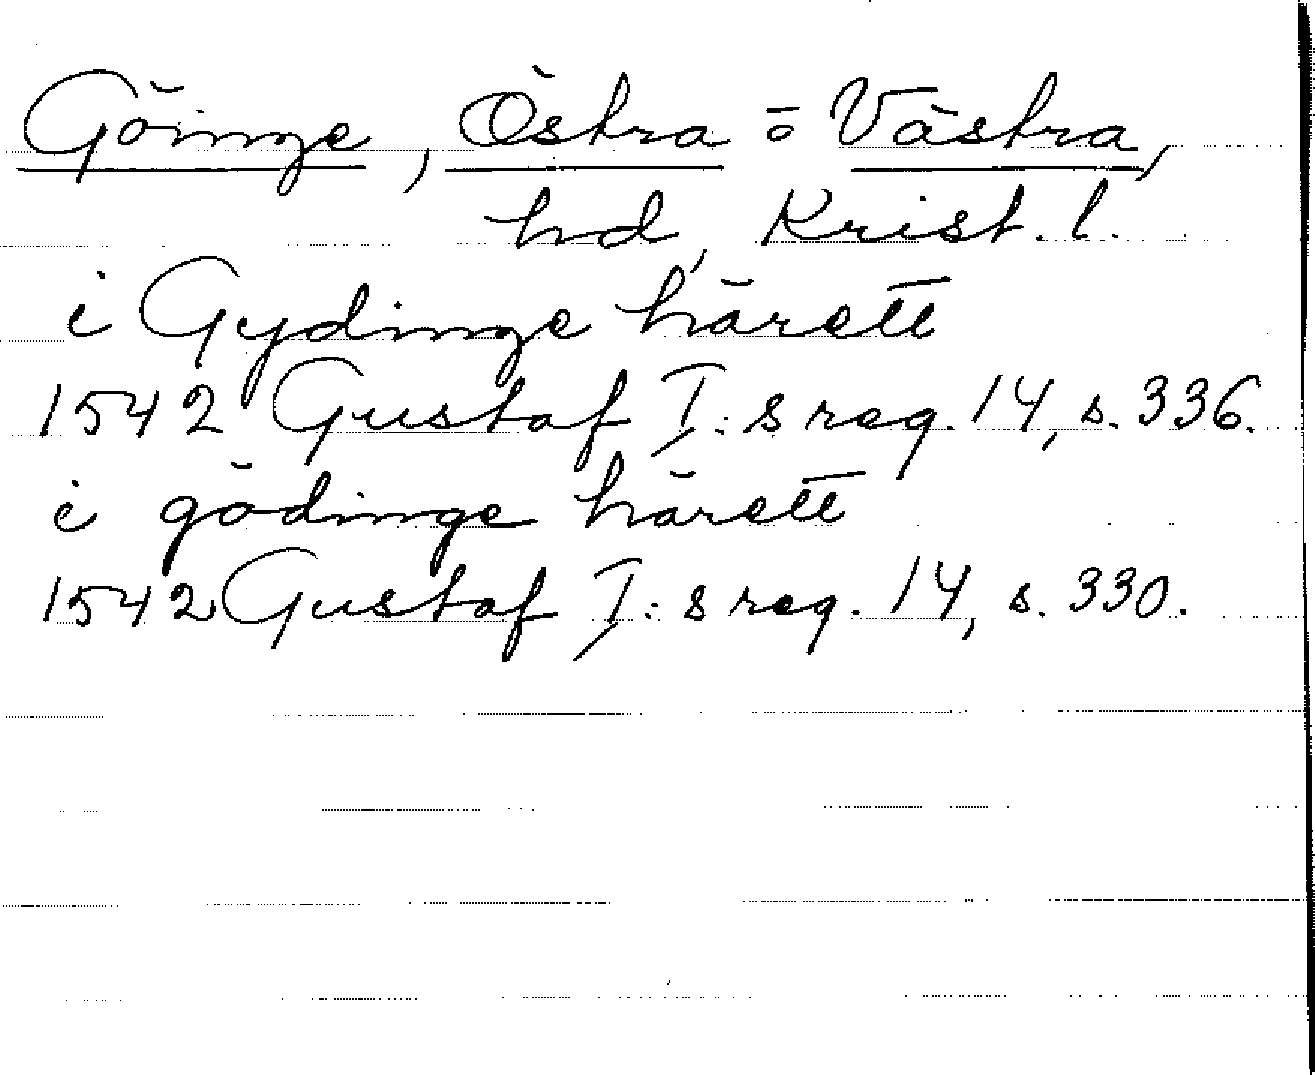 Göinge, Östra o Västra,
hd, Krist. l.
i Gydinge härett
1542 Gustaf I:s reg. 14, s. 336.
i gödinge härett
1542 Gustaf I:s reg. 14, s. 330.